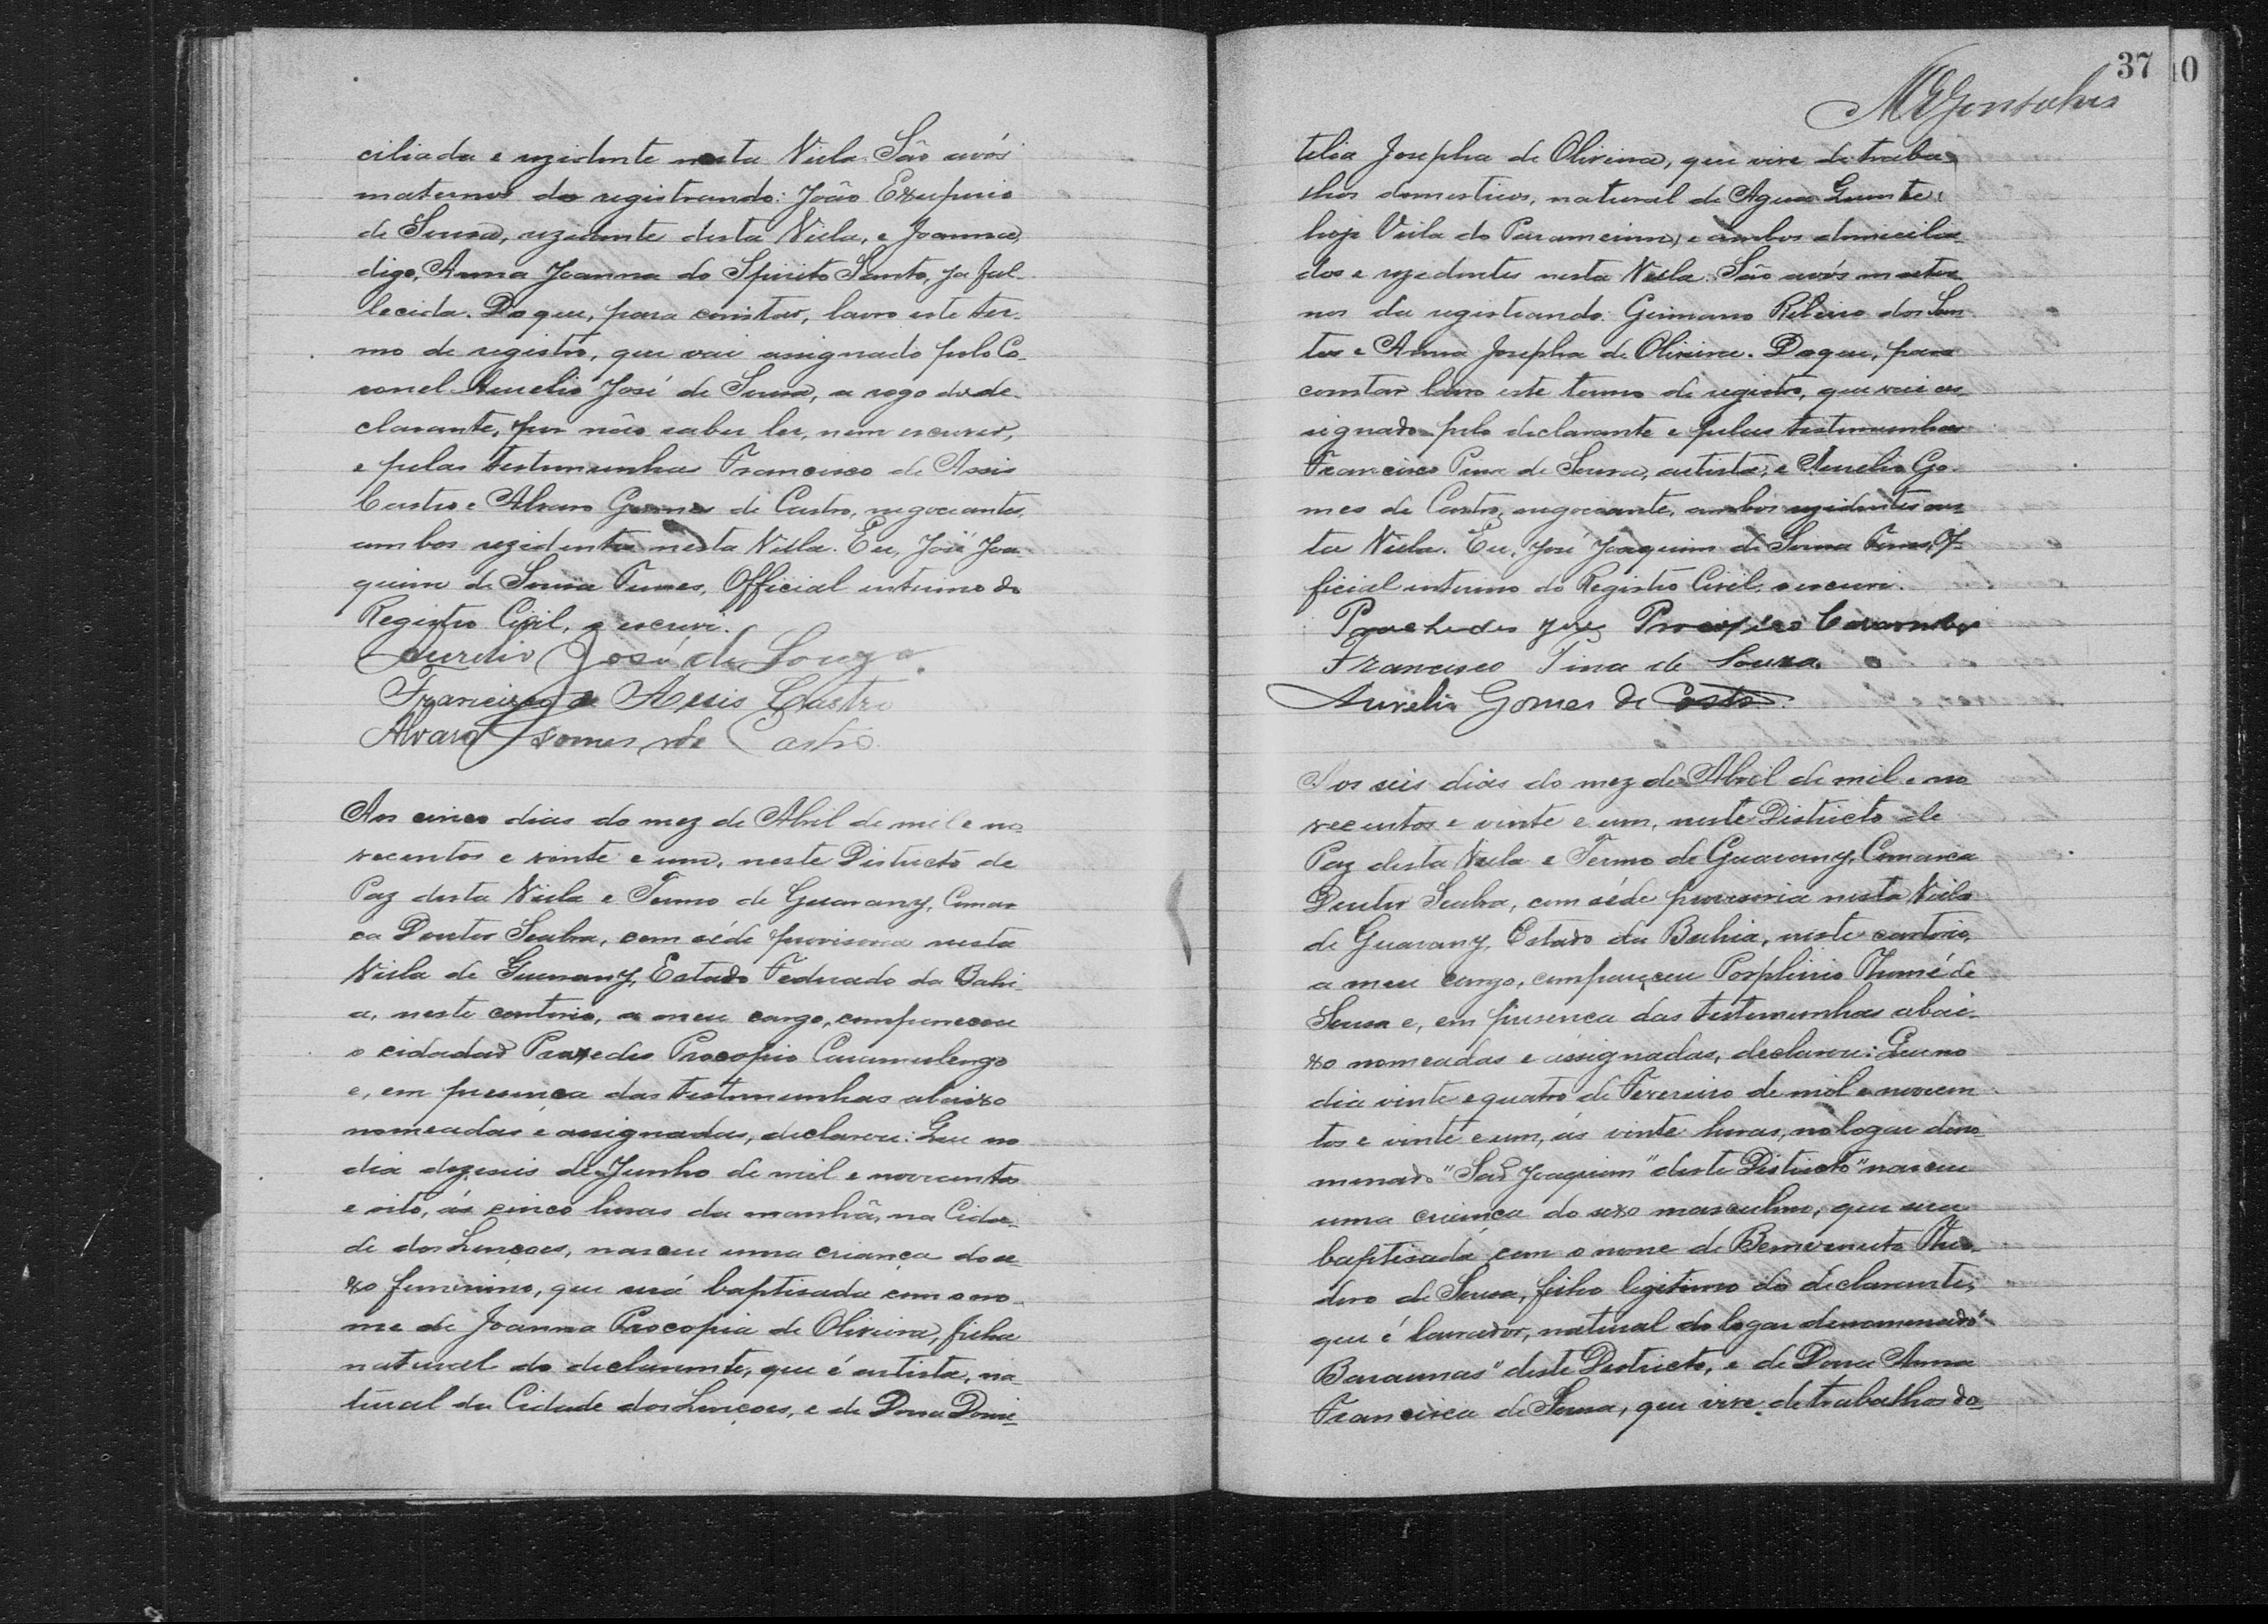 ciliada e rezidente nesta Villa. São avós
maternos do registrando: João Exuperio
de Sousa, rezidente desta Villa, e Joanna,
digo, Anna Joanna do Spirito Santo, ja fal-
lecida. Do que, para constar, lavro este ter-
mo de registro, que vai assignado pelo Co-
ronel Aurelio José de Sousa, a rogo do de-
clarante, por não saber ler, nem escrever,
e pelas testemunhas Francisco de Assis
Castro e Alvaro Gomes de Castro, negociantes,
ambos rezidentes nesta Villa. Eu, José Joa-
quim de Sousa Funes, Official interino do
Registro Civil, o escrevi.
Aurelio José de Souza.
Francisco de Assis Castro
Alvaro Gomes de Castro
Aos cinco dias do mez de Abril de mil e no-
vecentos e vinte e um, neste Districto de
Paz desta Villa e Termo de Guarany, Comar-
ca Doutor Seabra, com séde provisoria nesta
Villa de Guarany, Estado Federado da Bahi-
a, neste cartorio, a meu cargo, compareceu
o cidadão Praxedes Procopio Caramulengo
e, em presença das testemunhas abaixo
nomeadas e assignadas, declarou: Que no
dia dezeseis de Junho de mil e novecentos
e oito, ás cinco horas da manhã, na Cida-
de dos Lençoes, nasceu uma criança do se-
xo feminino, que será baptisada com o no-
me de Joanna Procopia de Oliveira, filha
natural do declarante, que é artista, na-
tural da Cidade dos Lençoes, e de Dona Domi-
37
40
MGGonsalves
telia Josepha de Oliveira, que vive de traba-
lhos domesticos, natural de Agua Quente,
hoje Villa do Paramirim, e ambos domicilia-
dos e rezidentes nesta Villa. São avós mater-
nos da registrando: Germano Ribeiro dos San-
tos e Anna Josepha de Oliveira. Do que, para
constar lavro este termo de registro, que vai as-
signado pelo declarante e pelas testemunhas
Francisco Pina de Sousa, artista, e Aurelio Go-
mes de Castro, negociante, ambos rezidentes nes-
ta Villa. Eu, José Joaquim de Sousa Funes, Of-
ficial interino do Registro Civil, o escrevi.
Prachedes José Procopio
Francisco Pina de Souza
Aurelio Gomes de Castro.
Aos seis dias do mez de Abril de mil e no-
vecentos e vinte e um, neste Districto de
Paz desta Villa e Termo de Guarany, Comarca
Doutor Seabra, com séde provisoria nesta Villa
de Guarany, Estado da Bahia, neste cartorio,
a meu cargo, compareceu Porphirio Thomé de
Sousa e, em presença das testemunhas abai-
xo nomeadas e assignadas, declarou: Que no
dia vinte e quatro de Fevereiro de mil e novecen-
tos e vinte e um, ás vinte horas, no logar deno-
minado "São Joaquim" deste Districto" nasceu
uma criança do sexo masculino, que sera
baptisada com o nome de Bemvenuto Theo-
doro de Sousa, filho legitimo do declarante,
que é lavrador, natural do logar denominado "
Baraunas" deste Districto, e de Dona Anna
Francisca de Sousa, que vive de trabalhos do-